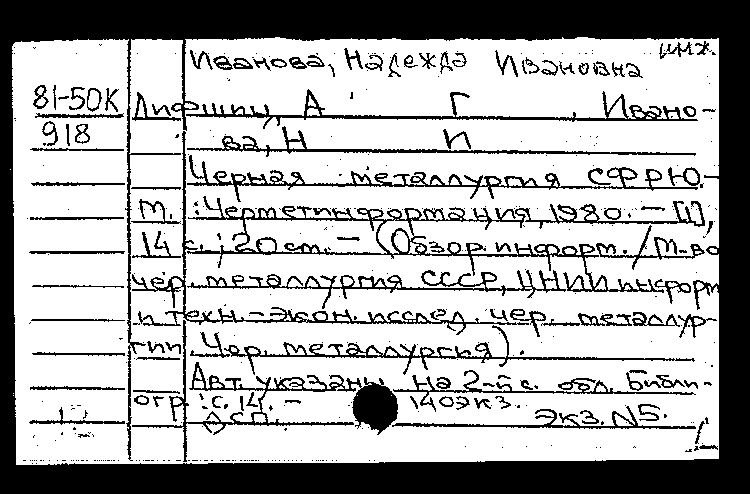 инж.
Иванова, Надежда Ивановна
81-50К Лифшиц, А Г , Ивано-
918 ва, Н И
Черная металлургия СФРЮ.-
М. : Черметинформация, 1980. - [1],
14 с. ; 20 см. - (Обзор. информ. / М-во
чер. металлургия СССР, ЦНИИ информ
и техн.-экон. исслед. чер. металлур-
гии. Чер. металлургия).
Авт. указаны на 2-й с. обл. Библи-
огр.: с. 14. - 140 экз.
сп. экз. N5.